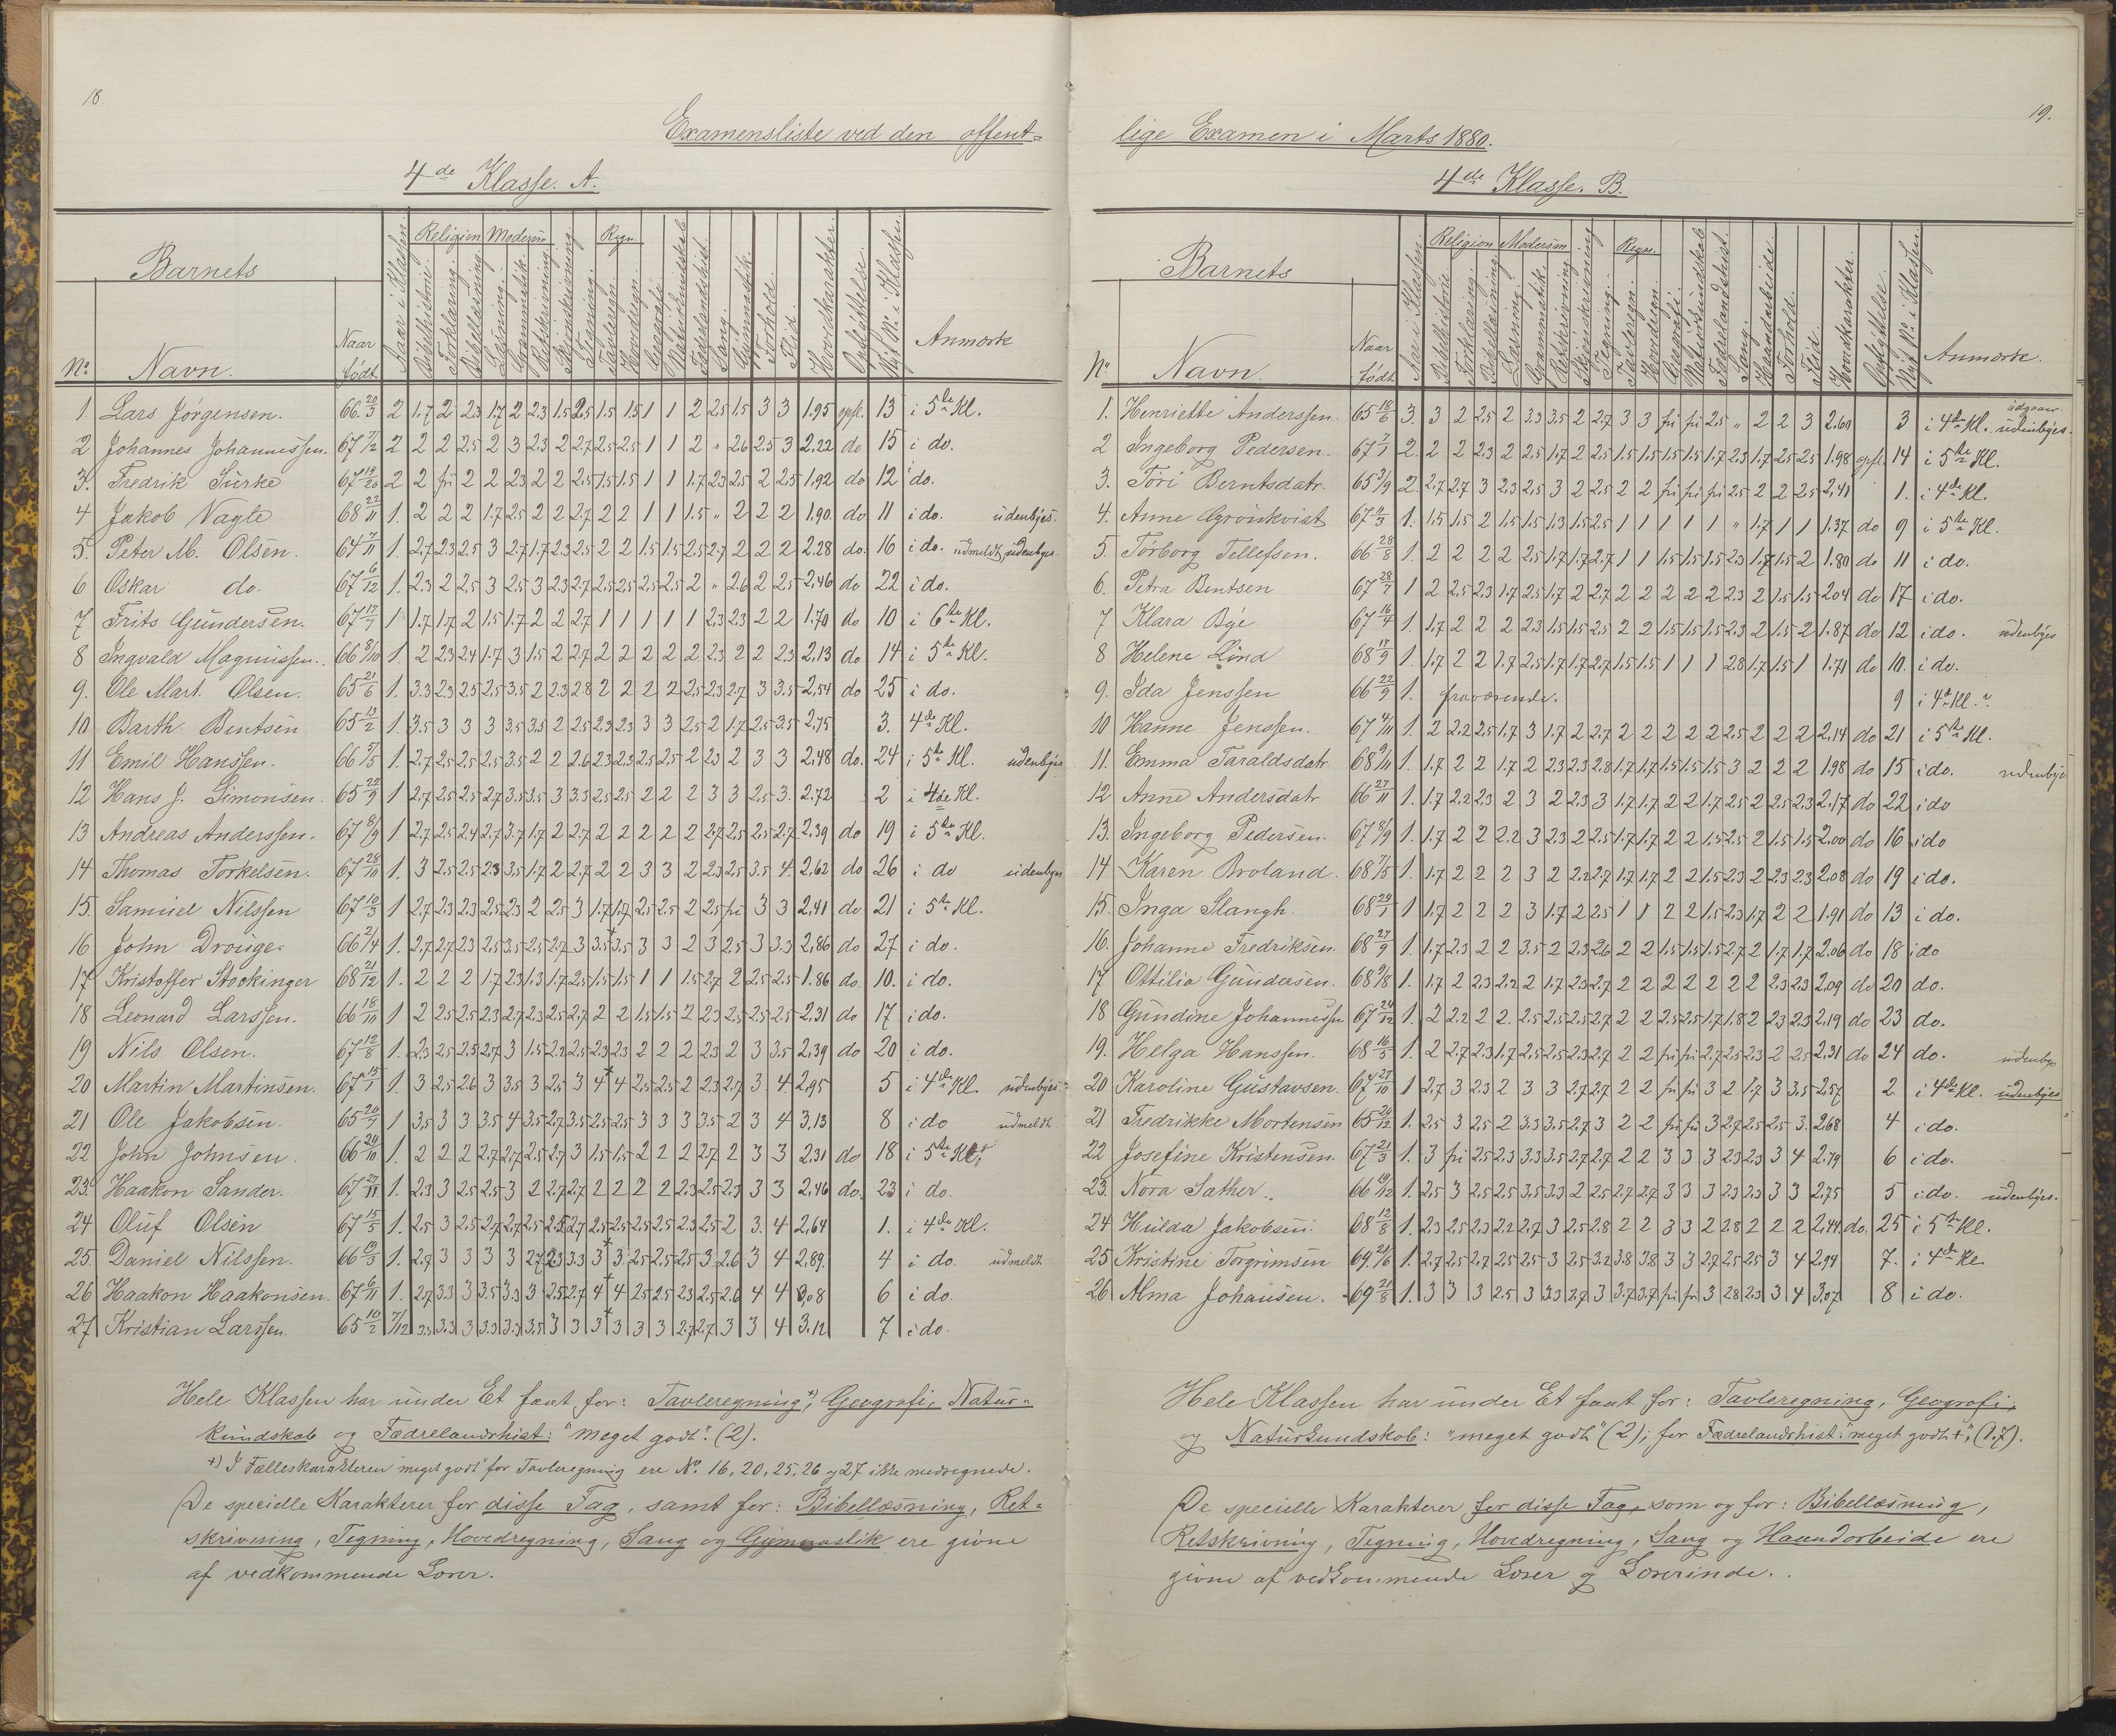 18.
Examensliste ved den offent=
4de Klasse. A.
Barnets
No. Navn. Naar født Aar i Klassen Religion Bibelhistorie. Forklaring. Bibellæsning. Modersm. Læsning. Grammatik. Retskrivning. Skjønskrivning. Tegning. Regn. Tavleregn. Hovedregn. Geografi Naturkundskab. Fædrelandshist. Sang. Gymnastik Forhold. Flid. Hovedkarakter. Opflyttelse. Nyt No. i Klassen Anmærk
1. Lars Jørgensen. 66 20/3 2 1.7 2 2.3 1.7 2 2.3 1.5 2.5 1.5 1.5 1 1 2 2.5 1.5 3 3 1.95 opfl. 13 i 5te Kl.
2 Johannes Johannessen. 2 2 2 2.5 2 3 2.3 2 2.7 2.5 2.5 1 1 2 " 2.6 2.5 3 2.22 do 15 i do.
3. Fredrik Surke 2 2 fri 2 2 2.3 2 2 2.5 1.5 1.5 1 1 1.7 2.3 2.5 2 2.5 1.92 do 12 i do.
4 Jakob Vagle 68 22/11 1. 2 2 2 1.7 2.5 2 2 2.7 2 2 1 1 1.5 " 2 2 2 1.90 do 11 i do. udenbyes.
5. Peter M. Olsen. 64 7/11 1. 2.7 2.3 2.5 3 2.7 1.7 2.3 2.5 2 2 1.5 1.5 2.5 2.7 2 2 2 2.28 do. 16 i do. udmeldt, udenbyes
6 Oskar do. 67 6/12 1. 2.3 2 2.5 3 2.5 3 2.3 2.7 2.5 2.5 2.5 2.5 2 " 2.6 2 2.5 2.46 do 22 i do.
7 Frits Gundersen. 67 17/7 1 1.7 1.7 2 1.5 1.7 2 2 2.7 1 1 1 1 1 2.3 2.3 2 2 1.70 do 10 i 6te Kl.
8 Ingvald Magnussen. 66 8/10 1. 2 2.3 2.4 1.7 3 1.5 2 2.7 2 2 2 2 2 2.3 2 2 2.3 2.13 do 14 i 5te Kl.
9. Ole Mart. Olsen. 65 21/6 1. 3.3 2.3 2.5 2.5 3.5 2 2.3 2.8 2 2 2 2 2.5 2.3 2.7 3 3.5 2.54 do 25 i do.
10 Barth. Bentsen 65 13/2 1 3.5 3 3 3 3.5 3.5 2 2.5 2.3 2.3 3 3 2.5 2 1.7 2.5 3.5 2.75 3. 4de Kl.
11 Emil Hanssen. 66 5/5 1. 2.7 2.5 2.5 2.5 3.5 2 2 2.6 2.3 2.3 2.5 2.5 2 2.3 2 3 3 2.48 do. 24 i 5te Kl. udenbyes
12 Hans J. Simonsen. 65 22/9 1 2.7 2.5 2.5 2.7 3.5 3.5 3 3.3 2.5 2.5 2 2 2 3 3 2.5 3. 2.72 2 i 4de Kl.
13 Andreas Anderssen. 67 8/9 1 2.7 2.5 2.4 2.7 3.7 1.7 2 2.7 2 2 2 2 2 2.7 2.5 2.5 2.7 2.39 do 19 i 5te Kl.
14 Thomas Torkelsen. 67 28/10 1. 3 2.5 2.5 2.3 3.5 1.7 2 2.7 2 2 3 3 2 2.3 2.5 3.5 4. 2.62 do 26 i do udenbyes
15. Samuel Nilssen 67 10/3 1 2.7 2.3 2.3 2.5 2.3 2 2.5 3 1.7 1.7 2.5 2.5 2 2.5 fri 3 3 2.41 do 21 i 5te Kl.
16 John Drouge. 66 2/4 1. 2.7 2.7 2.3 2.5 3.5 2.5 2.7 3 3.5+ 3.5 3 3 2 3 2.5 3 3.3 2.86 do 27 i do.
17 Kristoffer Stockinger 68 21/12 1. 2 2 2 1.7 2.3 1.3 1.7 2.5 1.5 1.5 1 1 1.5 2.7 2 2.5 2.5 1.86 do 10. i do.
18 Leonard Larssen. 66 18/11 1 2 2.5 2.5 2.3 2.7 2.3 2.5 2.7 2 2 1.5 1.5 2 2.3 2.5 2.5 2.5 2.31 do 17 i do.
19 Nils Olsen. 67 12/8 1. 2.3 2.5 2.5 2.7 3 1.5 2.2 2.5 2.3 2.3 2 2 2 2.3 2 3 3.5 2.39 do 20 i do.
20 Martin Martinsen. 67 15/1 1 3 2.5 2.6 3 3.5 3 2.5 3 4+ 4 2.5 2.5 2 2.3 2.7 3 4. 2.95 5 i 4de Kl. udenbyes
21 Ole Jakobsen. 65 20/7 1 3.5 3 3 3.5 4 3.5 2.7 3.5 2.5 2.5 3 3 3 3.5 2 3 4 3.13 8 i do udmeldt
22 John Johnsen. 66 20/10 1. 2 2 2 2.7 2.7 2.5 2.7 3 1.5 1.5 2 2 2 2.7 2 3 3 2.31 do 18 i 5te Kl.
23. Haakon Sander. 67 27/11 1. 2.3 3 2.5 2.5 3 2 2.7 2.7 2 2 2 2 2.3 2.5 2.3 3 3 2.46 do. 23 i do.
24 Oluf Olsen 67 15/5 1. 2.5 3 2.5 2.7 2.7 2.5 2.5 2.7 2.5 2.5 2.5 2.5 2.3 2.5 2 3. 4 2.64 1. i 4de Kl.
25. Daniel Nilssen. 66 19/3 1. 2.7 3 3 3 3 2.7 2.3 3.3 3+ 3 2.5 2.5 2.5 3 2.6 3 4 2.89. 4 i do. udmeldt
26 Haakon Haakonsen. 67 6/11 1. 2.7 3.3 3 3.5 3.3 3 2.5 2.7 4+ 4 2.5 2.5 2.3 2.5 2.6 4 4 3.08 6 i do.
27 Kristian Larssen. 65 10/2 7/12 3.3 3.3 3 3.3 3.3 3.5 3 3 3+ 3 3 3 2.7 2.7 3 3 4 3.12 7 i do.
Hele Klassen har under Et faat for: Tavleregning+), Geografi, Natur=
kundskab og Fædrelandshist: "meget godt". (2).
+) I Fælleskarakteren "meget godt" for Tavleregning ere No. 16, 20, 25, 26 og 27 ikke medregnede.
De specielle Karakterer for disse Fag, samt for: Bibellæsning, Ret=
skrivning, Tegning, Hovedregning, Sang og Gymnastik ere givne
af vedkommende Lærer.
19.
lige Examen i Marts 1880.
4de Klasse. B.
Barnets
No. Navn. Naar født. Aar i Klassen Religion Bibelhistorie. Forklaring. Bibellæsning. Modersm. Læsning. Grammatik. Retskrivning. Skjønskrivning Tegning. Regn. Tavleregn. Hovedregn. Geografi. Naturkundskab Fædrelandshist. Sang. Haandarbeide. Forhold. Flid. Hovedkarakter. Opflyttelse. Nyt No. i Klassen Anmærk.
1. Henriette Anderssen. 65 18/6 3. 3 2 2.5 2 3.3 3.5 2 2.7 3 3 fri fri 2.5 " 2 2 3 2.60 3 i 4de Kl. udgaar. udenbyes.
2 Ingeborg Pedersen. 67 7/1 2. 2 2 2.3 2 2.5 1.7 2 2.5 1.5 1.5 1.5 1.5 1.7 2.3 1.7 2.5 2.5 1.98 opfl. 14 i 5te Kl.
3. Tori Berntsdatr. 65 3/9 2. 2.7 2.7 3 2.3 2.5 3 2 2.5 2 2 fri fri fri 2.5 2 2 2.5 2.41 1. i 4de Kl.
4. Anne Grønkvist 67 11/3 1. 1.5 1.5 2 1.5 1.5 1.3 1.5 2.5 1 1 1 1 1 " 1.7 1 1 1.37 do 9 i 5te Kl.
5. Torborg Tellefsen. 66 28/8 1. 2 2 2 2 2.5 1.7 1.7 2.7 1 1 1.5 1.5 1.5 2.3 1.7 1.5 2 1.80 do 11 i do.
6. Petra Bentsen 67 28/7 1 2 2.5 2.3 1.7 2.5 1.7 2 2.7 2 2 2 2 2 2.3 2 1.5 1.5 2.04 do 17 i do.
7 Klara Bye 67 16/4 1. 1.7 2 2 2 2.3 1.5 1.5 2.5 2 2 1.5 1.5 1.5 2.3 2 1.5 2 1.87 do 12 i do. udenbyes
8 Helene Lind 68 17/9 1. 1.7 2 2 1.7 2.5 1.7 1.7 2.7 1.5 1.5 1 1 1 2.8 1.7 1.5 1 1.71 do 10. i do.
9. Ida Jenssen 66 22/9 1. fraværende. 9 i 4de Kl.
10 Hanne Jenssen. 67 4/11 1. 2 2.2 2.5 1.7 3 1.7 2 2.7 2 2 2 2 2 2.5 2 2 2 2.14 do 21 i 5te Kl.
11. Emma Taraldsdatr 68 9/11 1. 1.7 2 2 1.7 2 2.3 2.3 2.8 1.7 1.7 1.5 1.5 1.5 3 2 2 2 1.98 do 15 i do. udenbyes
12 Anne Andersdatr 66 27/11 1. 1.7 2.2 2.3 2 3 2 2.3 3 1.7 1.7 2 2 1.7 2.5 2 2.5 2.3 2.17 do 22 i do
13. Ingeborg Pedersen. 67 8/9 1. 1.7 2 2 2.2 3 2.3 2 2.5 1.7 1.7 2 2 1.5 2.5 2 1.5 1.5 2.00 do 16 i do
14 Karen Broland. 68 7/5 1. 1.7 2 2 2 3 2 2.2 2.7 1.7 1.7 2 2 1.5 2.3 2 2.3 2.3 2.08 do 19 i do.
15. Inga Slangh. 68 29/1 1 1.7 2 2 2 3 1.7 2 2.5 1 1 2 2 1.5 2.3 1.7 2 2 1.91 do 13 i do.
16. Johanne Fredriksen. 68 27/9 1. 1.7 2.3 2 2 3.5 2 2.3 2.6 2 2 1.5 1.5 1.5 2.7 2 1.7 1.7 2.06 do 18 i do
17 Ottilia Gundersen. 68 9/8 1. 1.7 2 2.3 2.2 2 1.7 2.3 2.7 2 2 2 2 2 2 2 2.3 2.3 2.09 do 20 do.
18 Gundine Johannessen 67 24/12 1. 2 2.2 2 2. 2.5 2.5 2.5 2.7 2 2 2.5 2.5 1.7 1.8 2 2.3 2.3 2.19 do 23 do.
19. Helga Hanssen. 68 16/5 1. 2 2.7 2.3 1.7 2.5 2.5 2.3 2.7 2 2 fri fri 2.7 2.5 2.3 2 2.5 2.31 do 24 do. udenbys
20 Karoline Gustavsen. 1 2.7 3 2.3 2 3 3 2.7 2.7 2 2 fri fri 3 2 1.7 3 3.5 2.57 2 i 4de Kl. udenbyes
21 Fredrikke Mortensen 65 20/12 1. 2.5 3 2.5 2 3.3 3.5 2.7 3 2 2 fri fri 3 2.7 2.5 2.5 3. 2.68 4 i do.
22 Josefine Kristensen. 67 21/3 1. 3 fri 2.5 2.3 3.3 3.5 2.7 2.7 2 2 3 3 3 2.3 2.3 3 4 2.79 6 i do.
23. Nora Sæther. 66 19/12 1. 2.5 3 2.5 2.5 3.5 3.3 2 2.5 2.7 2.7 3 3 3 2.3 2.3 3 3 2.75 5 i do. udenbyes.
24 Hulda Jakobsen. 68 12/8 1. 2.3 2.5 2.3 2.2 2.7 3 2.5 2.8 2 2 3 3 2 2.8 2 2 2 2.44 do. 25 i 5te Kl.
25 Kristine Torgrimsen 69 21/6 1. 2.7 2.5 2.7 2.5 2.5 3 2.5 3.2 3.8 3.8 3 3 2.7 2.5 2.5 3 4 2.94 7. i 4de Kl.
26 Alma Johansen. 69 21/8 1. 3 3 3 2.5 3 3.3 2.7 3 3.7 3.7 fri fri 3 2.8 2.3 3 4 3.07 8 i do.
Hele Klassen har under Et faat for: Tavleregning, Geografi,
og Naturkundskab: "meget godt" (2); for Fædrelandshist: "meget godt +", (1.7).
De specielle Karakterer for disse Fag, som og for: Bibellæsning,
Retskrivning, Tegning, Hovedregning, Sang og Haandarbeide ere
givne af vedkommende Lærer og Lærerinde.